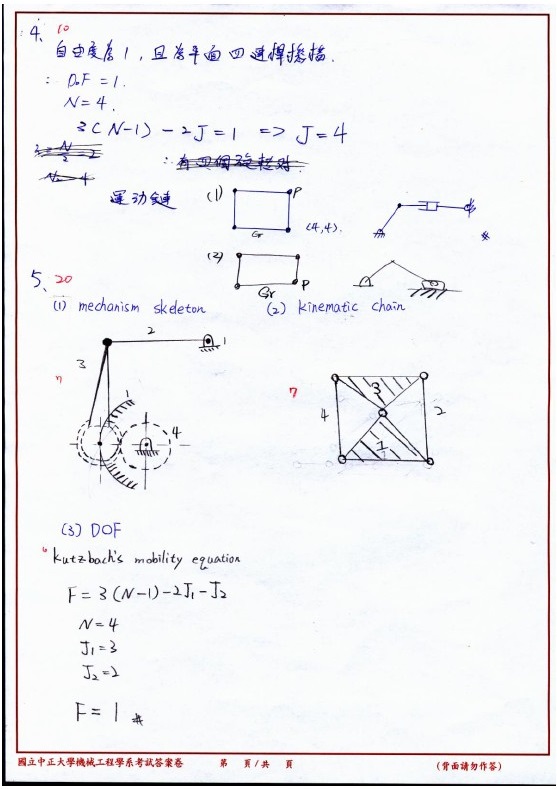 4、 10
自由度為 1，且為平面四連桿機構.
∴ DoF = 1.
N = 4.
3(N-1) - 2J = 1 => J = 4
運动鏈 (1) P
Gr (4,4).
(2)
Gr P
5、 20
(1) mechanism skeleton (2) kinematic chain
2
1
3
7 7
1
4
3
4 2
1
(3) DOF
6
Kutzbach's mobility equation
F = 3(N-1)-2J₁-J₂
N = 4
J₁ = 3
J₂ = 2
F = 1 #
國立中正大學機械工程學系考試答案卷 第 頁/共 頁 (背面請勿作答)